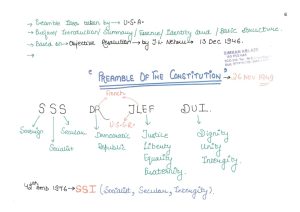 → Preamble Idea taken by → U.S.A.
→ Preface/ Introduction/ Summary/ Essence/ Identity Card / Basic Structure.
→ Based on → Objective Resolution → by J.L. Nehru → 13 Dec 1946.
→
" PREAMBLE OF THE CONSTITUTION " → 26 Nov 1949
French
SSS DR JLEF DUI.
U.S.S.R.
Sovereign Secular Democratic Justice Dignity
Socialist Republic Liberty Unity
Equality Integrity.
Fraternity.
42nd Amb. 1976 → SSI (Socialist, Secular, Integrity).